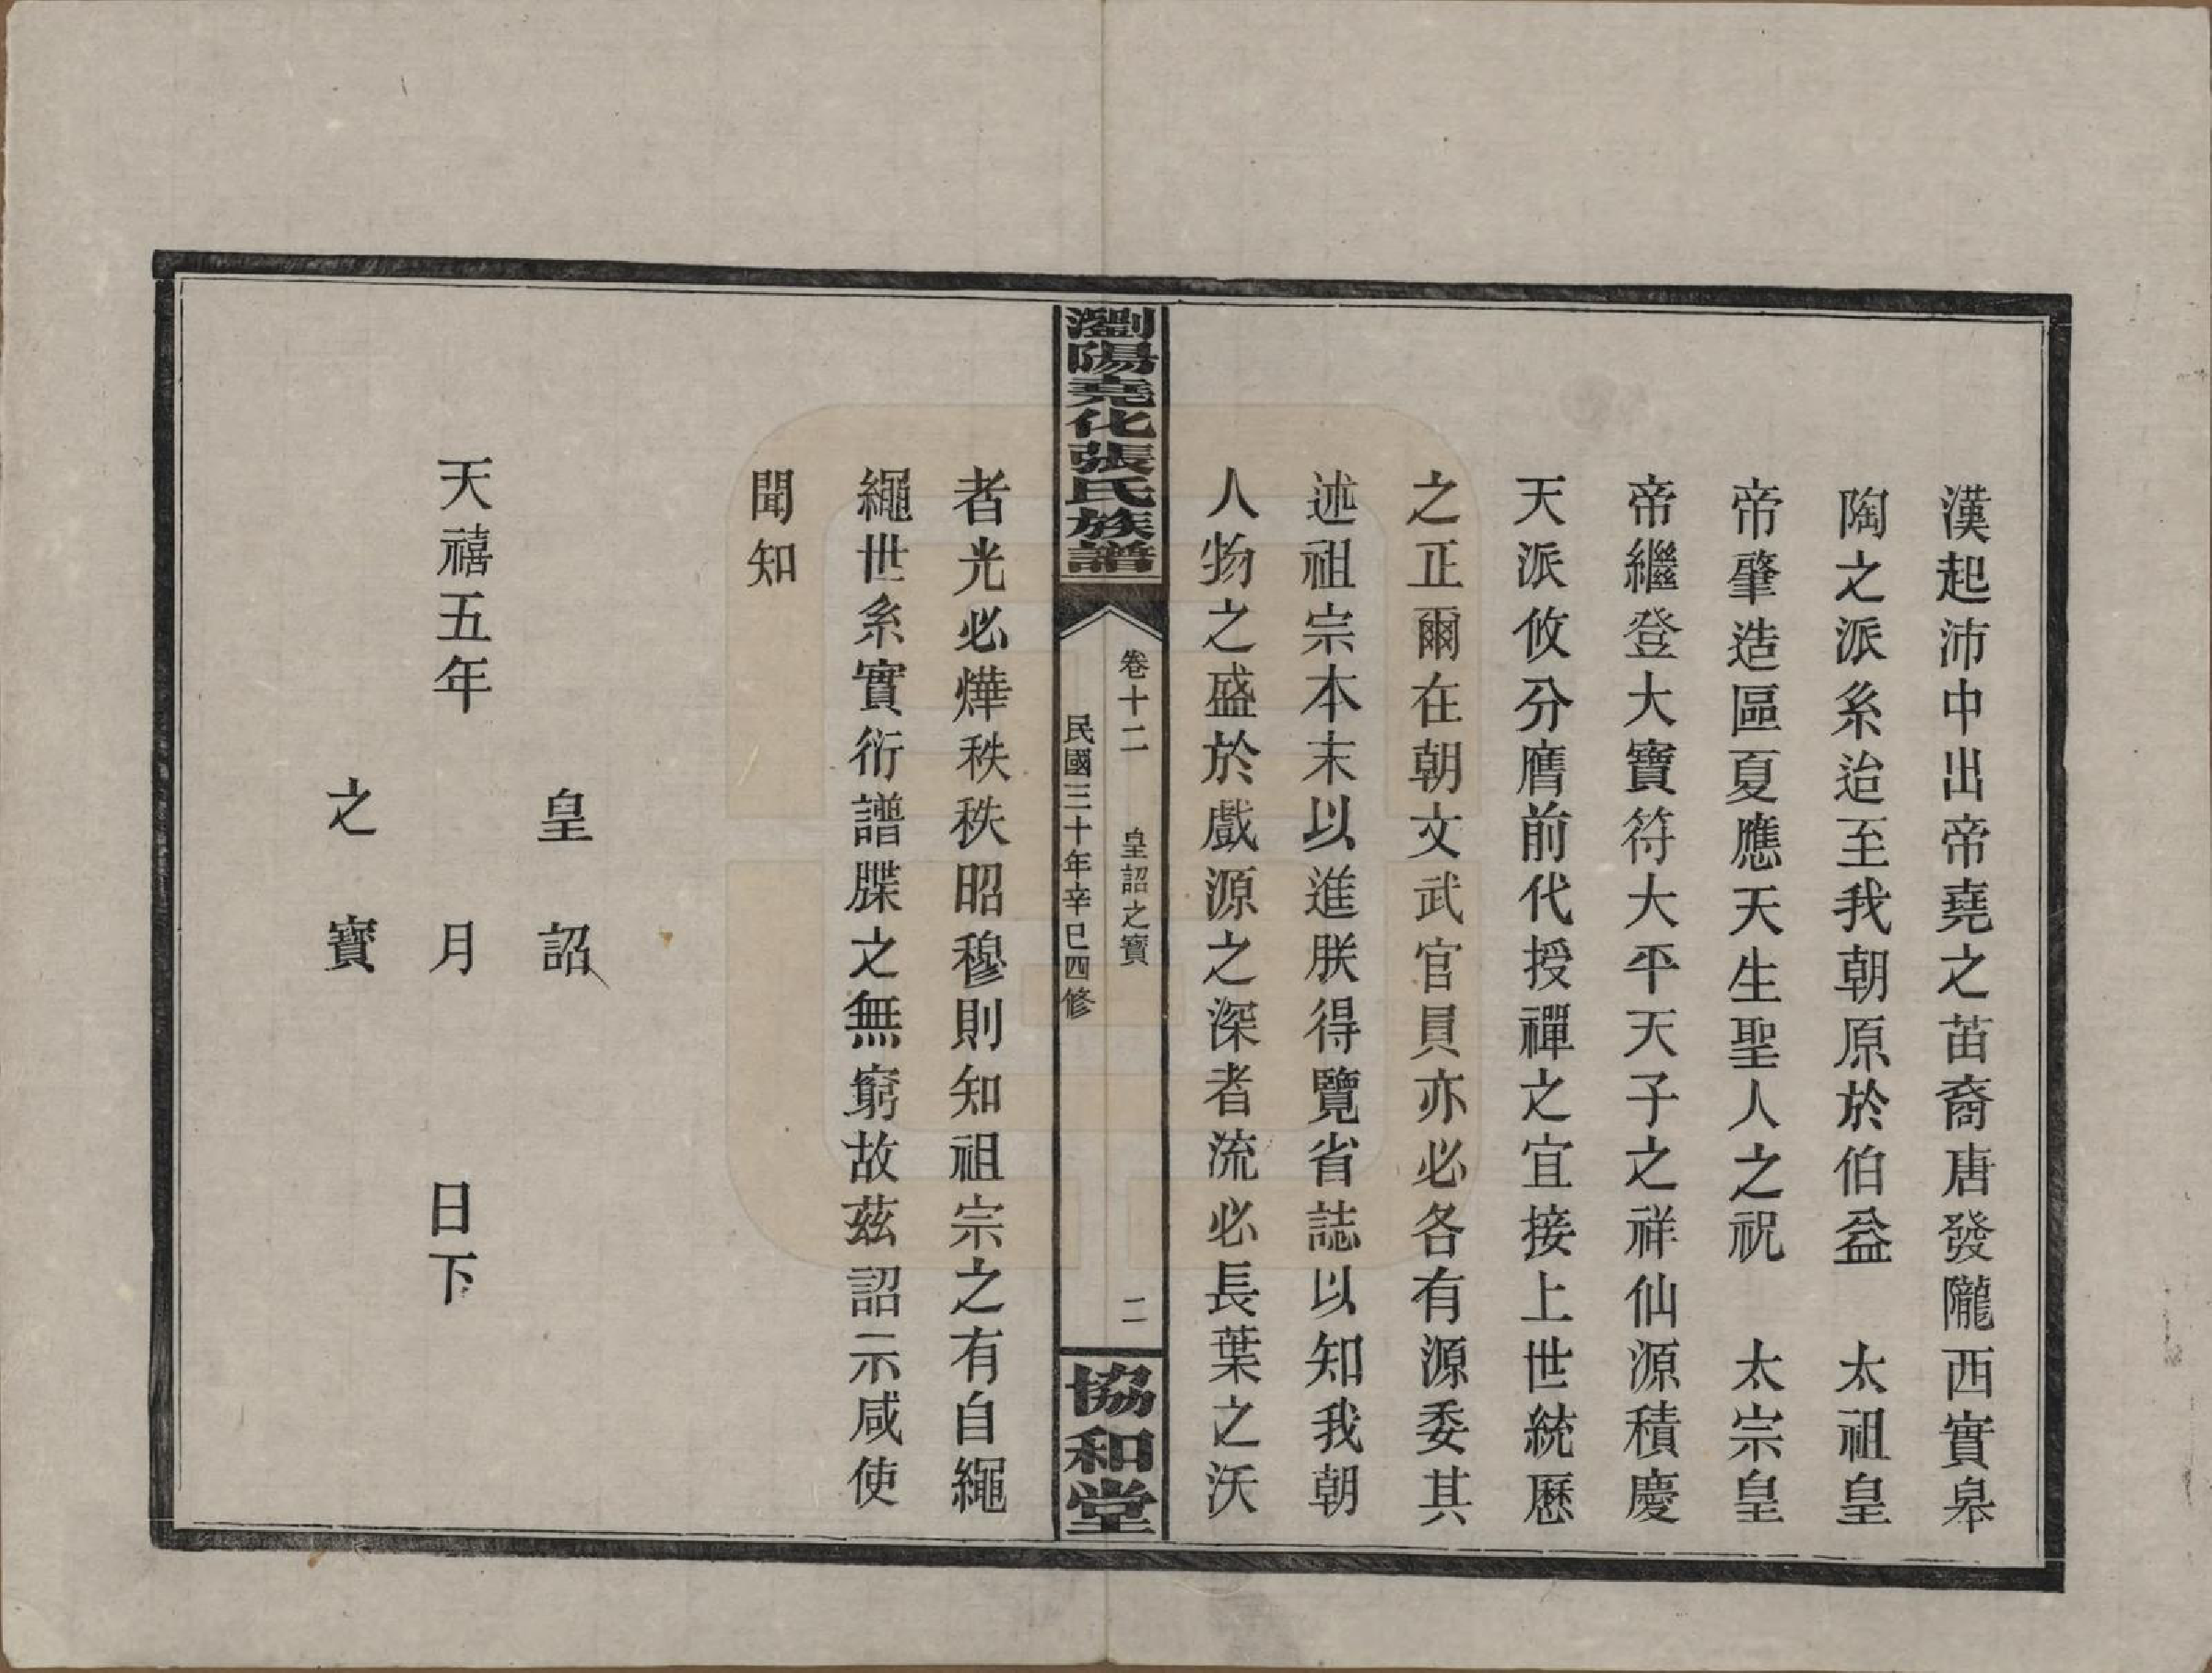 漢起沛中出帝堯之苗裔唐發隴西實皋
陶之派系迨至我朝原於伯益　太祖皇
帝肇造區夏應天生聖人之祝　太宗皇
帝繼登大寶符大平天子之祥仙源積慶
天派攸分膺前代授禪之宜接上世統歷
之正爾在朝文武官員亦必各有源委其
述祖宗本末以進朕得覽省誌以知我朝
人物之盛於戲源之深者流必長葉之沃
瀏陽堯化張氏族譜
卷十二　皇詔之寶　二
民國三十年辛巳四修
協和堂
者光必燁秩秩昭穆則知祖宗之有自繩
繩世系實衍譜牒之無窮故茲詔示咸使
聞知
皇詔
天禧五年　月　日下
之寶